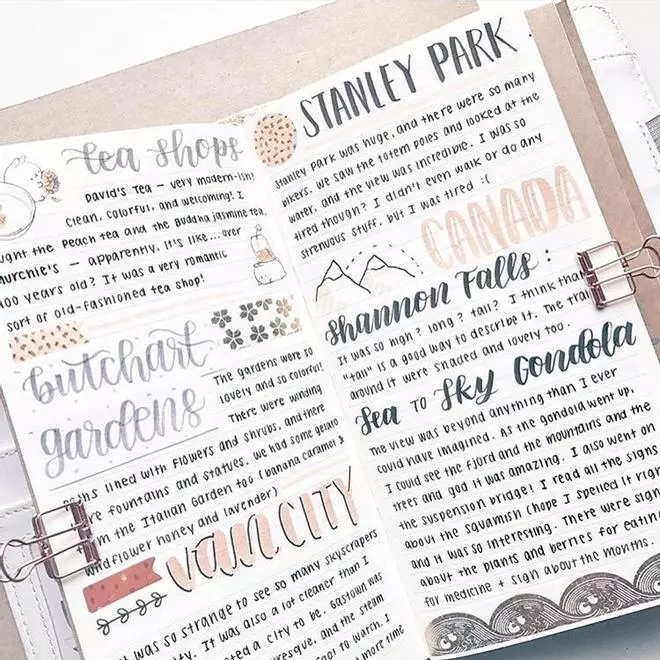 tea shops
David's Tea – very modern-ish!
clean, colorful, and welcoming! I
the Peach tea and the Buddha jasmine tea.
– apparently, it's like...over
years old? It was a very romantic
sort of old-fashioned tea shop!
butchart
gardens
The gardens were so
lovely and so colorful!
There were winding
lined with flowers and shrubs, and there
fountains and statues. We had some gelato
the Italian Garden too (banana caramel &
wildflower honey and lavender)
van CITY
was so strange to see so many skyscrapers
It was also a lot cleaner than I
a city to be. Gastown was
and the steam
to watch. I
more time
STANLEY PARK
Stanley Park was huge, and there were so many
bikers. We saw the totem poles and looked at the
water, and the view was incredible. I was so
tired though? I didn't even walk or do any
strenuous stuff, but I was tired :(
CANADA
Shannon Falls:
It was so high? long? tall? I think that
"tall" is a good way to describe it. The trail
around it were shaded and lovely too.
Sea TO Sky Gondola
The view was beyond anything than I ever
could have imagined. As the gondola went up,
I could see the fjord and the mountains and the
trees and god it was amazing. I also went on
the suspension bridge! I read all the signs
about the Squamish (hope I spelled it right
and it was so interesting. There were signs
about the plants and berries for eating
for medicine + sign about the months.